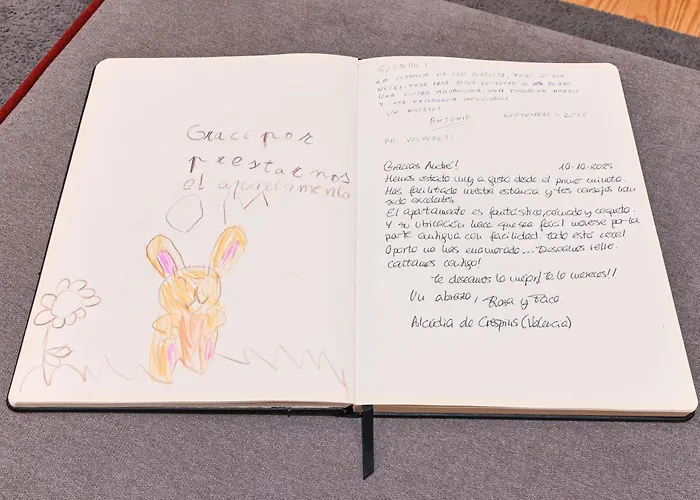 Graci por
prestarnos
el apartamento
LA ESTANCIA HA SIDO PERFECTA, TODO LO QUE
NECESITABA PARA
UNA CIUDAD MARAVILLOSA, UNA
Y UNA EXPERIENCIA INOLVIDABLE
UN ABRAZO!
ANTONIO. SEPTIEMBRE - 2025
PD: VOLVERÉ!!
Gracias André! 10-10-2025
Hemos estado muy a gusto desde el primer minuto.
Has facilitado nuestra estancia y tus consejos han
sido excelentes
El apartamento es fantástico, cómodo y coqueto.
Y su ubicación hace que sea fácil moverse por la
parte antigua con facilidad. Todo está cerca!
Oporto no has enamorado... Deseamos volver.
Contamos contigo!
Te deseamos lo mejor! Te lo mereces!!
Un abrazo, Rosa y Paco.
Alcúdia de Crespins (Valencia)